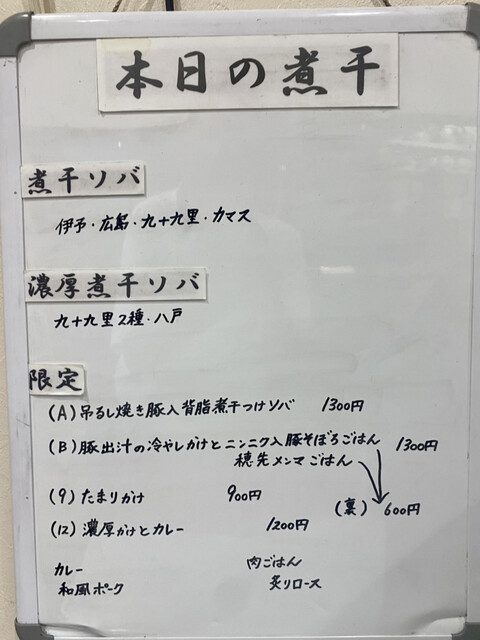 本日の煮干
煮干ソバ
伊予・広島・九十九里・カマス
濃厚煮干ソバ
九十九里2種・八戸
限定
(A) 吊るし焼き豚入背脂煮干つけソバ 1300円
(B) 豚出汁の冷やしかけとニンニク入豚そぼろごはん 1300円
穂先メンマごはん
(9) たまりかけ 900円 (裏) 600円
(12) 濃厚かけとカレー 1200円
カレー 肉ごはん
和風ポーク 炙りロース